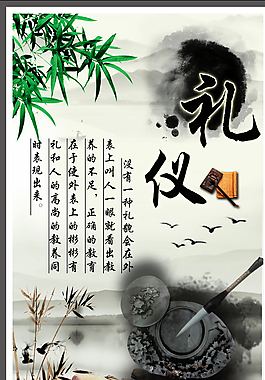 礼仪
没有一种礼貌会在外
表上叫人一眼就看出教
养的不足，正确的教育
在于使外表上的彬彬有
礼和人的高尚的教养同
时表现出来。